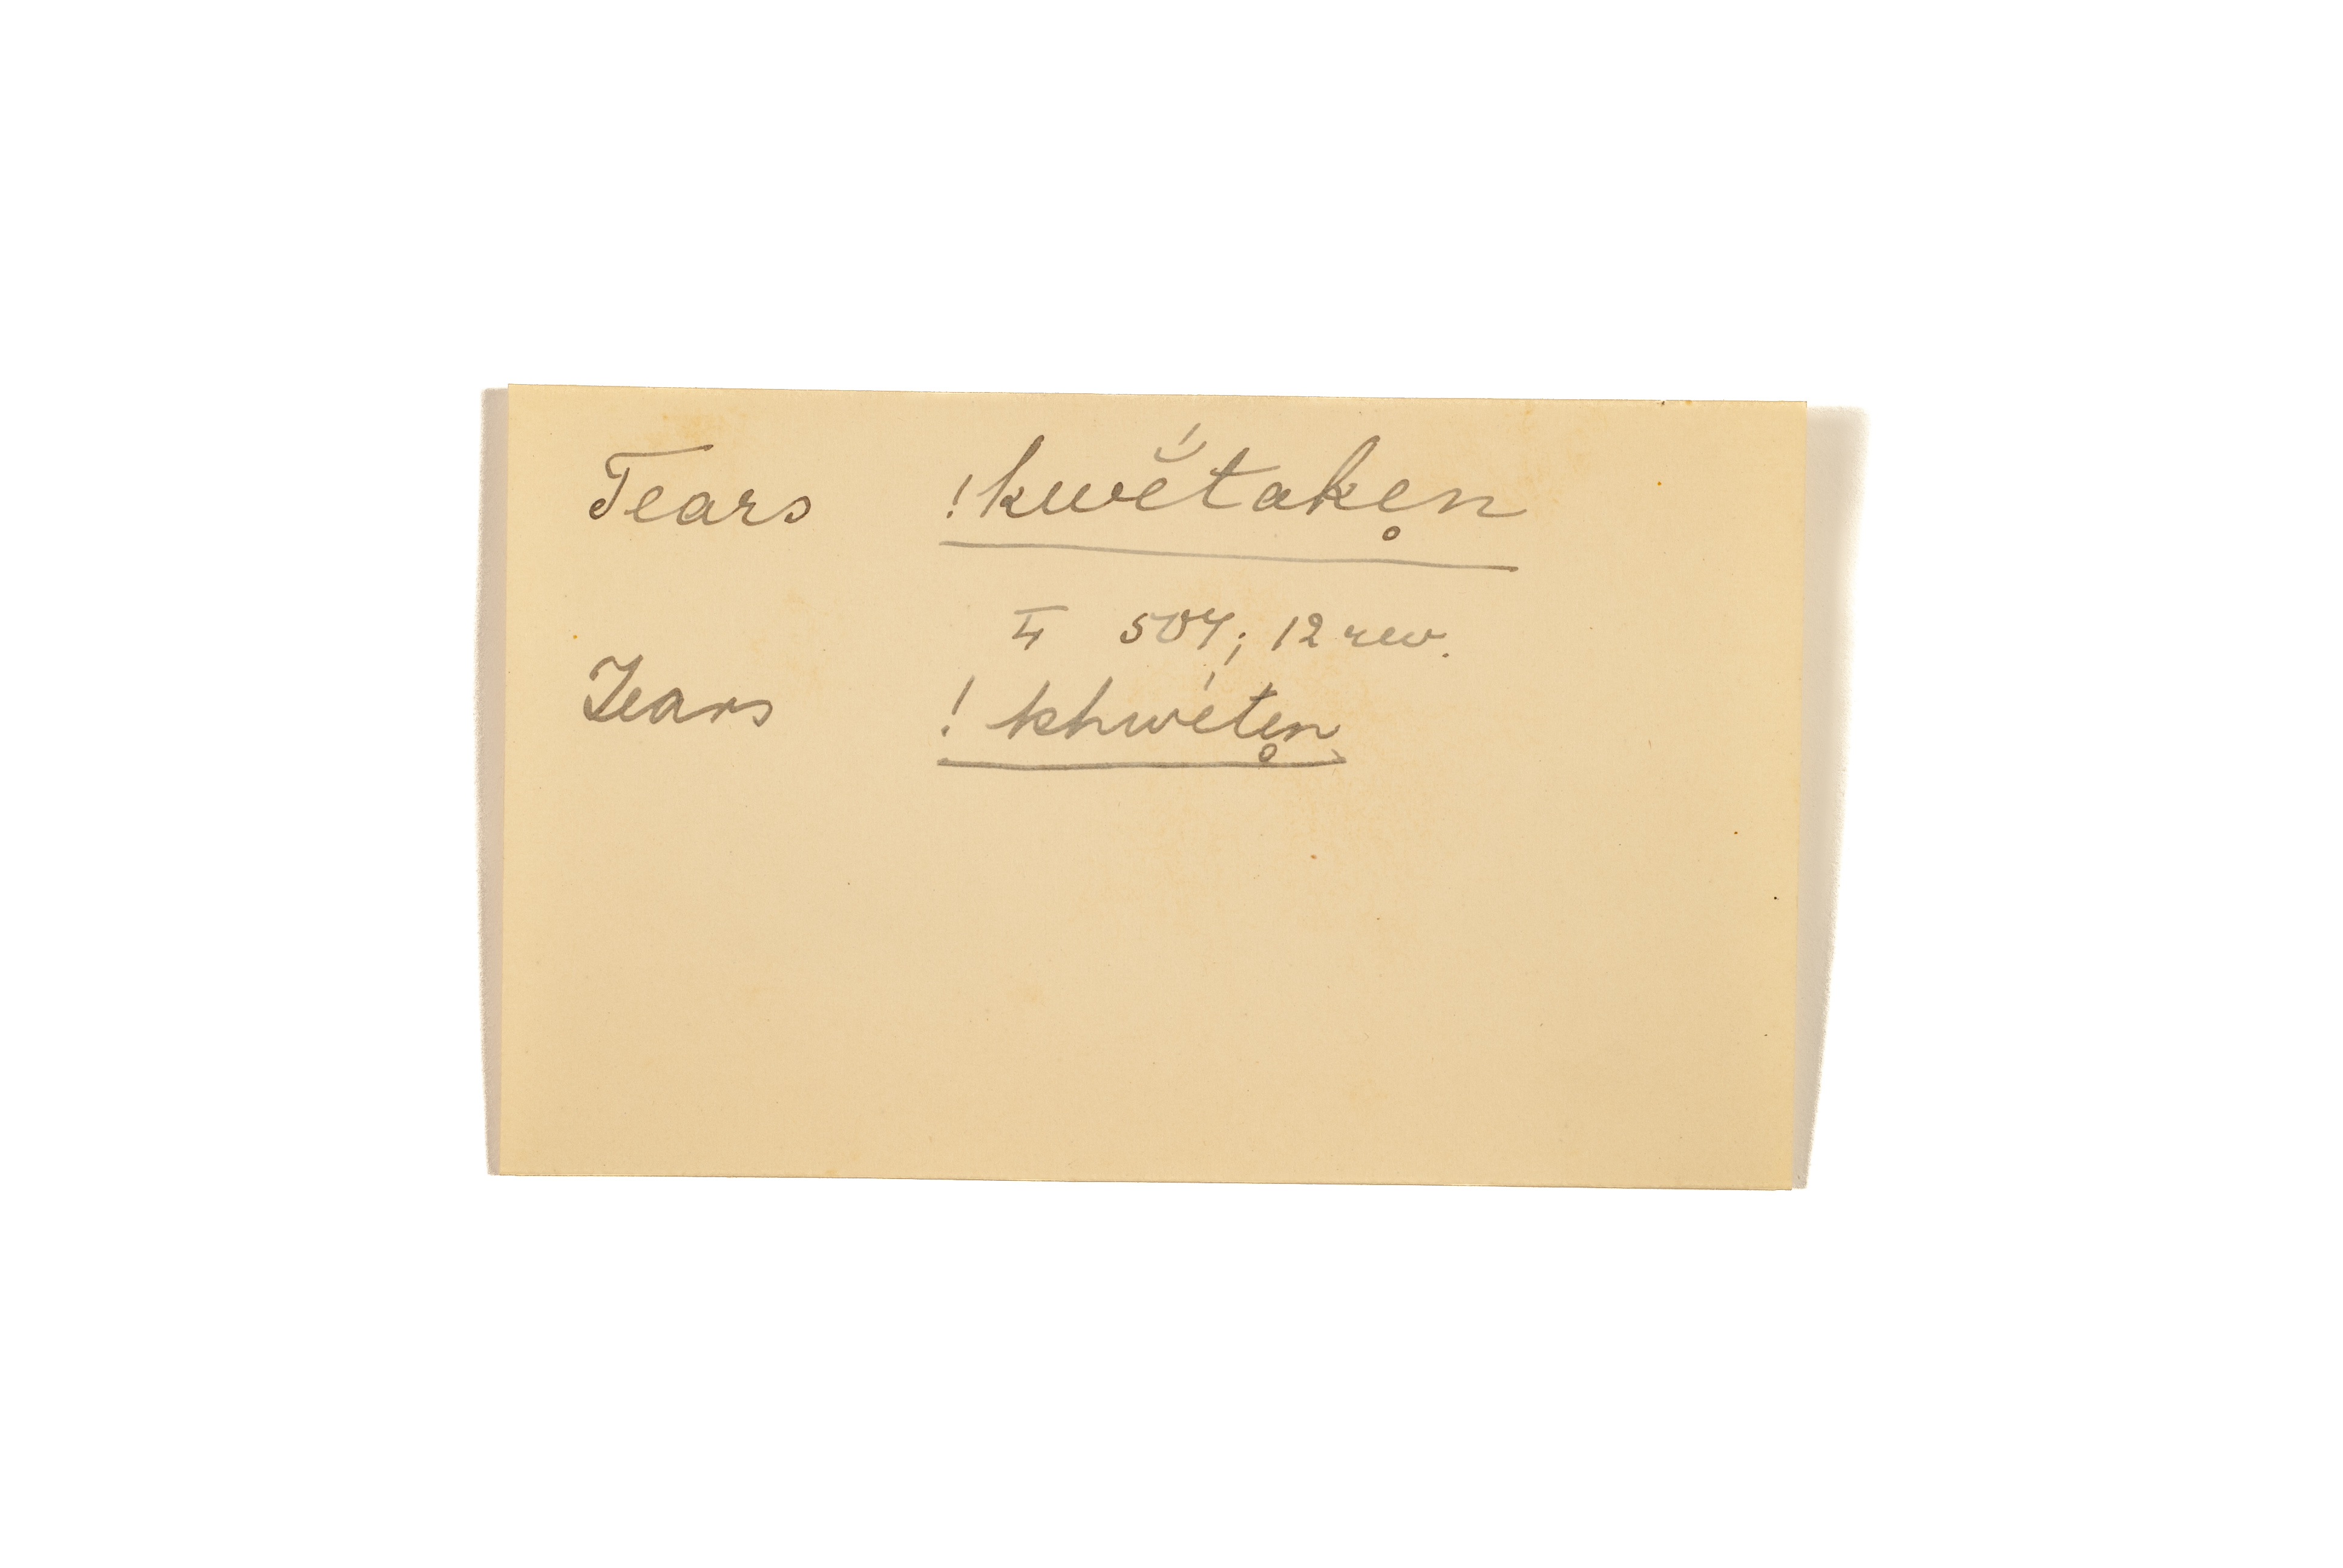 Tears !kwĕ́take̥n
L 507; 12 rev.
Tears ! khwéte̥n